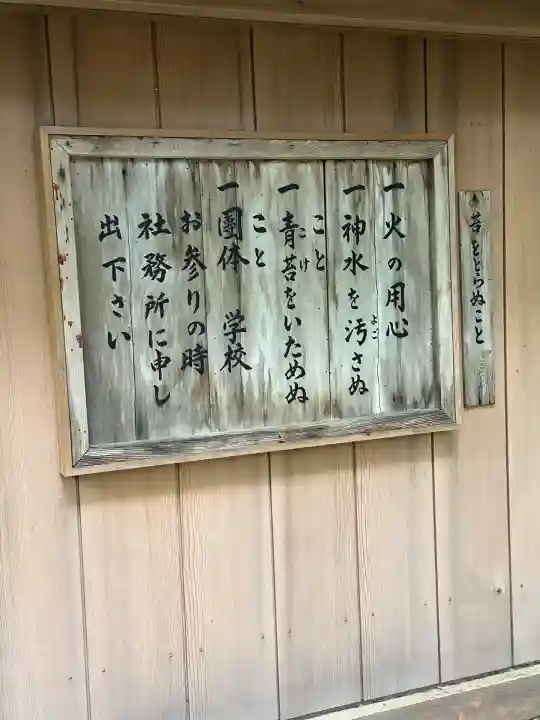 苔をとらぬこと
一 火の用心
一 神水を汚さぬ
よご
こと
一 青苔をいためぬ
こけ
こと
一 團体 学校
お参りの時
社務所に申し
出下さい